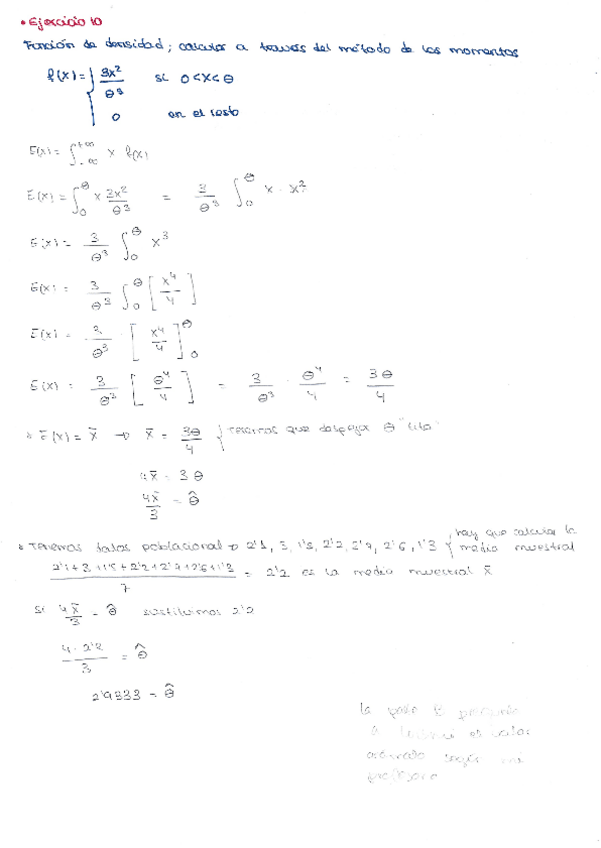 • Ejercicio 10
Función de densidad; calcular a través del método de los momentos
f(x) = { 3x²/θ³ si 0<x<θ
0 en el resto
E(x) = ∫_{-∞}^{+∞} x f(x)
E(x) = ∫_0^θ x 3x²/θ³ = 3/θ³ ∫_0^θ x · x²
E(x) = 3/θ³ ∫_0^θ x³
E(x) = 3/θ³ ∫_0^θ [x⁴/4]
E(x) = 3/θ³ · [x⁴/4]_0^θ
E(x) = 3/θ³ [θ⁴/4] = 3/θ³ · θ⁴/4 = 3θ/4
E(x) = x̄ → x̄ = 3θ/4 { Tenemos que despejar θ
4x̄ = 3θ
4x̄/3 = θ̂
Tenemos datos poblacional → 2'1, 3, 1'5, 2'2, 2'7, 2'6, 1'3 { hay que calcular la media muestral
2'1+3+1'5+2'2+2'7+2'6+1'3 / 7 = 2'2 es la media muestral x̄
Si 4x̄/3 = θ̂ sustituimos 2'2
4·2'2/3 = θ̂
2'9333 = θ̂
es valor
ordenado según mi